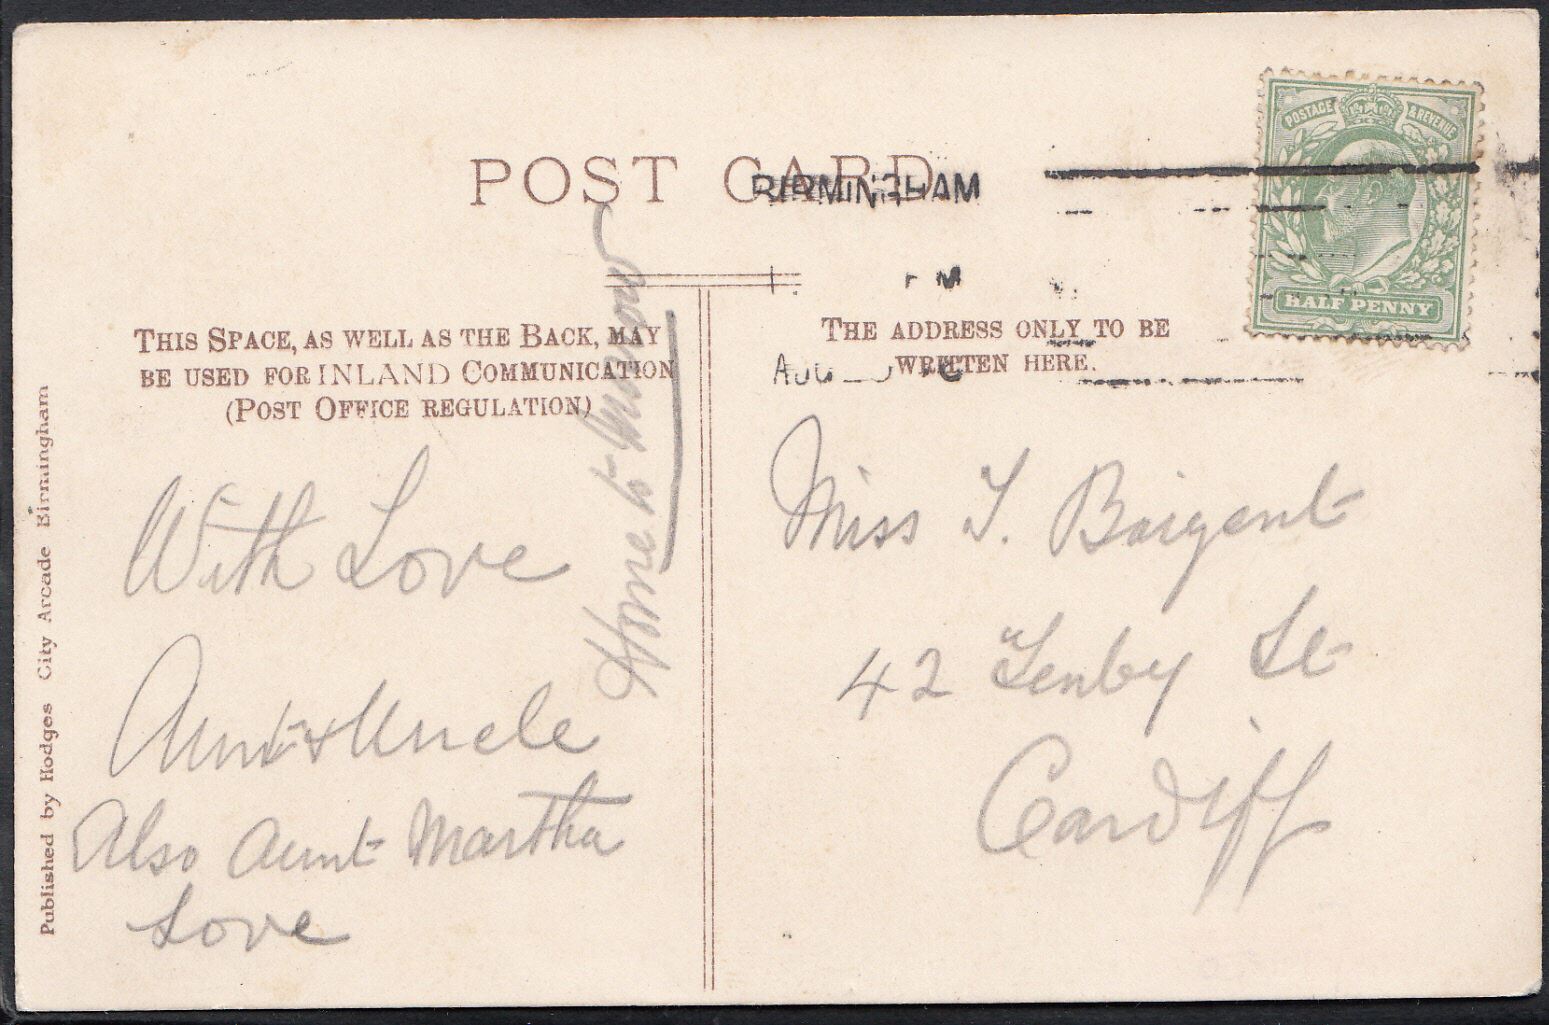 POST CARD
BIRMINGHAM
PM
AUG
POSTAGE & REVENUE
HALF PENNY
THIS SPACE, AS WELL AS THE BACK, MAY
BE USED FOR INLAND COMMUNICATION
(POST OFFICE REGULATION)
THE ADDRESS ONLY TO BE
WRITTEN HERE.
With Love
Aunt & Uncle
Also Aunt Martha
Love
Home to Morrow
Miss I. Baigent
42 Tenby St
Cardiff
Published by Hodges City Arcade Birmingham